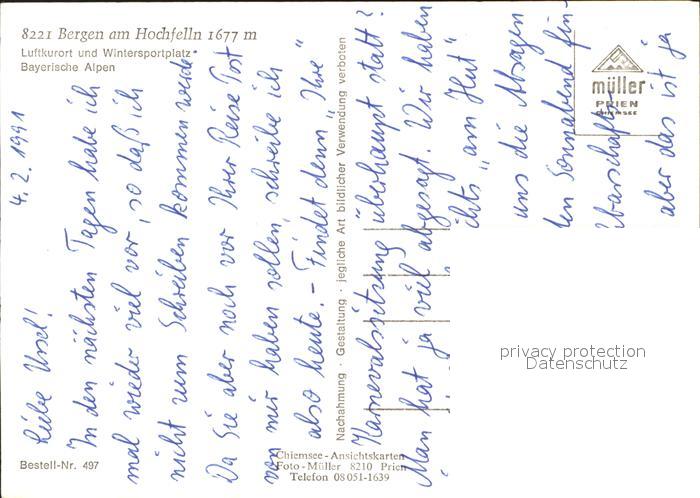 8221 Bergen am Hochfelln 1677 m
Luftkurort und Wintersportplatz
Bayerische Alpen
4.2.1991
Liebe Ursel!
In den nächsten Tagen habe ich
mal wieder viel vor, so daß ich
nicht zum Schreiben kommen werde.
Da Sie aber noch vor Ihrer Reise Post
von mir haben sollen, schreibe ich
also heute. – Findet denn „Ihre"
Karnevalssitzung überhaupt statt?
Man hat ja viel abgesagt. Wir haben
ichts „am Hut"
uns die Absagen
en Sonnabend fin-
barschafts-
aber das ist ja
Nachahmung · Gestaltung · jegliche Art bildlicher Verwendung verboten
müller
PRIEN
CHIEMSEE
privacy protection
Datenschutz
Bestell-Nr. 497
Chiemsee-Ansichtskarten
Foto-Müller 8210 Prien
Telefon 08051-1639